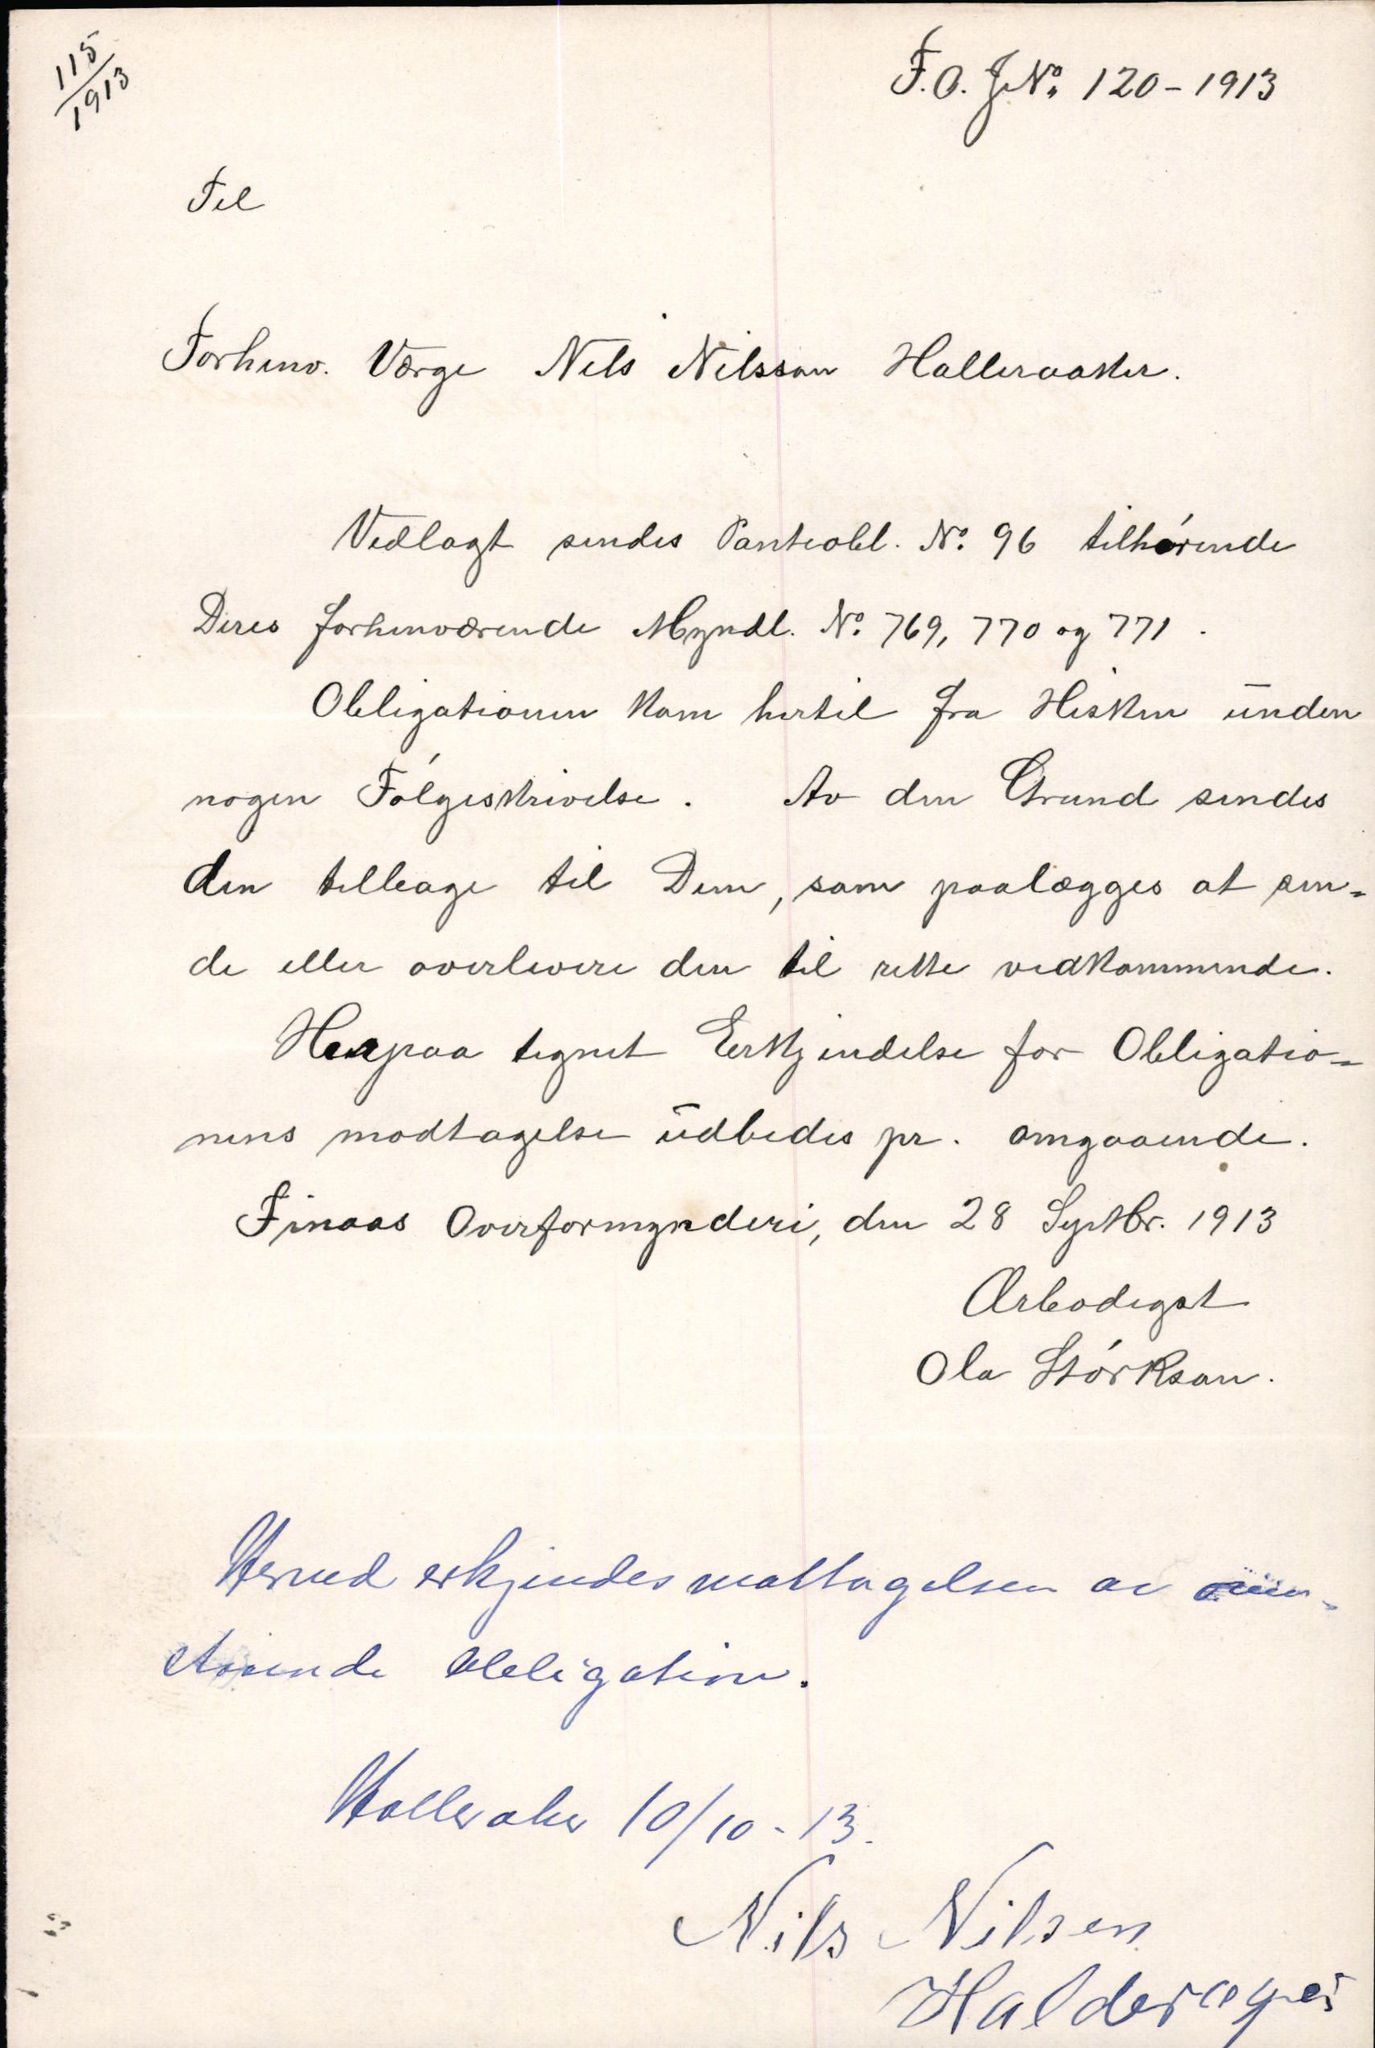 115/1913
F.O. J.No. 120-1913
Til
Forhenv. Værge Nils Nilsson Halleraaker.
Vedlagt sendes Panteobl. No. 96 tilhørende
Deres forhenværende Myndl. No. 769, 770 og 771.
Obligationen kom hertil fra Hisken uuden
nogen Følgeskrivelse. Av den Grund sendes
den tilbage til Dem, som paalægges at sen-
de eller overlevere den til rette vedkommende.
Herpaa tegnet Erkjendelse for Obligatio-
nens modtagelse udbedes pr. omgaaende.
Finaas Overformynderi, den 28 Septbr. 1913
Ærbødigst
Ola Størkson.
Herved erkjendes mottagelsen av
staaende obligation.
Halleraker 10/10-13.
Nils Nilsen